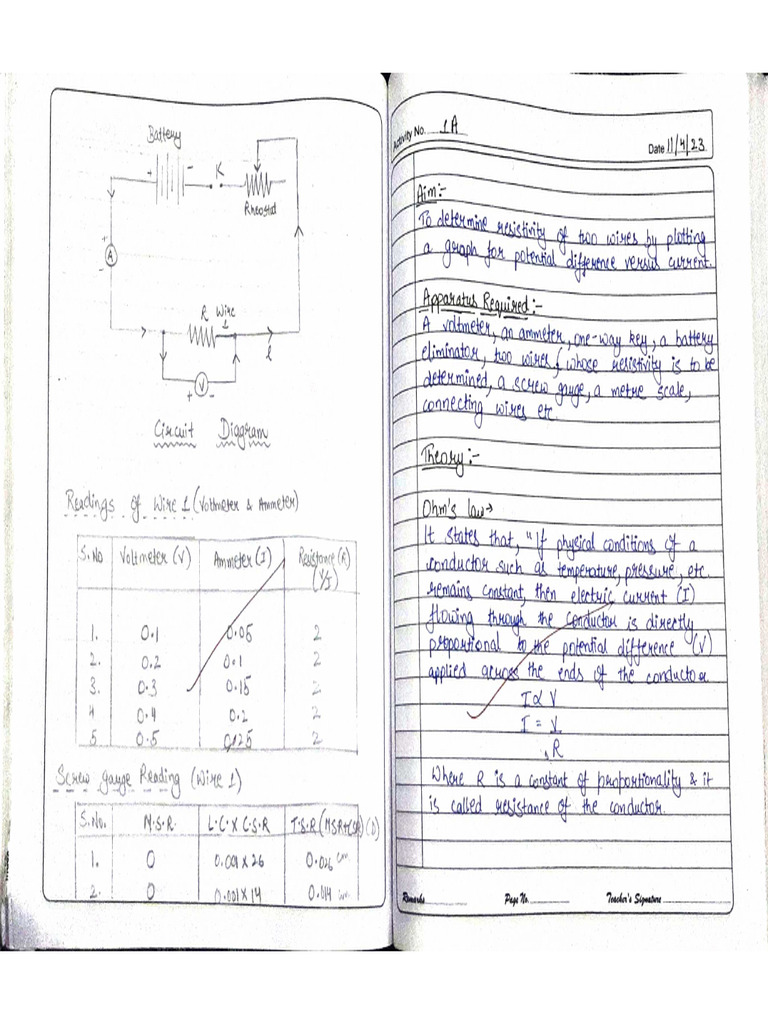 Battery
+
-
K
Rheostat
+
A
-
R
Wire
+
V
-
Circuit Diagram
Readings of Wire 1 (Voltmeter & Ammeter)
S.No Voltmeter (V) Ammeter (I) Resistance (R) (V/I)
1. 0.1 0.05 2
2. 0.2 0.1 2
3. 0.3 0.15 2
4 0.4 0.2 2
5 0.5 0.25 2
Screw gauge Reading (Wire 1)
S.No. M.S.R. L.C. X C.S.R T.S.R (MSR+CSR) (D)
1. 0 0.001 x 26 0.026 cm
2. 0 0.001 x 14 0.014 cm
Activity No. 1A
Date 11/4/23
Aim:-
To determine resistivity of two wires by plotting
a graph for potential difference versus current.
Apparatus Required:-
A voltmeter, an ammeter, one-way key, a battery
eliminator, two wires, whose resistivity is to be
determined, a screw gauge, a metre scale,
connecting wires etc.
Theory:-
Ohm's law→
It states that, "If physical conditions of a
conductor such as temperature, pressure, etc.
remains constant, then electric current (I)
flowing through the conductor is directly
proportional to the potential difference (V)
applied across the ends of the conductor
I ∝ V
I = V
R
Where R is a constant of proportionality & it
is called resistance of the conductor.
Remarks Page No. Teacher's Signature